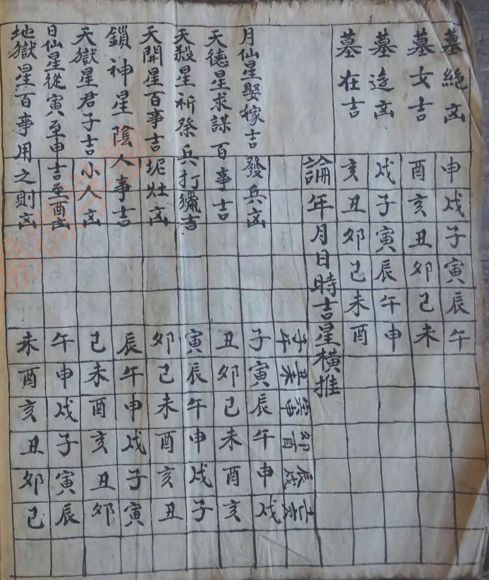 墓絕凶 申戌子寅辰午
墓女吉 酉亥丑卯巳未
墓迯凶 戌子寅辰午申
墓在吉 亥丑卯巳未酉
論年月日時吉星橫推
子午 丑未 寅申 卯酉 辰戌 巳亥
月仙星娶嫁吉 發兵凶 子寅辰午申戌
天德星求謀百事吉 丑卯巳未酉亥
天殺星祈祭兵打獵吉 寅辰午申戌子
天開星百事吉坭灶凶 卯巳未酉亥丑
鎖神星陰人事吉 辰午申戌子寅
天獄星君子吉小人凶 巳未酉亥丑卯
日仙星從寅至申吉至酉凶 午申戌子寅辰
地獄星百事用之則凶 未酉亥丑卯巳